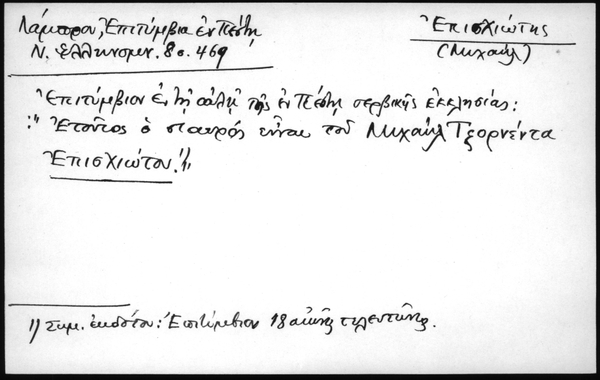 Λάμπρου, Ἐπιτύμβια ἐν Πέστῃ
Ν. Ἑλληνομν. 8ο. 469
Ἐπισχιώτης
(Μιχαήλ)
Ἐπιτύμβιον ἐν τῇ αὐλῇ τῆς ἐν Πέστῃ σερβικῆς ἐκκλησίας:
:" Ἐτοῦτος ὁ σταυρός εἶναι τοῦ Μιχαήλ Τζορνέντα
Ἐπισχιώτου."1)
1) Σημ. ἐκδότου: Ἐπιτύμβιον 18 αἰῶνος τελευτῶντος.